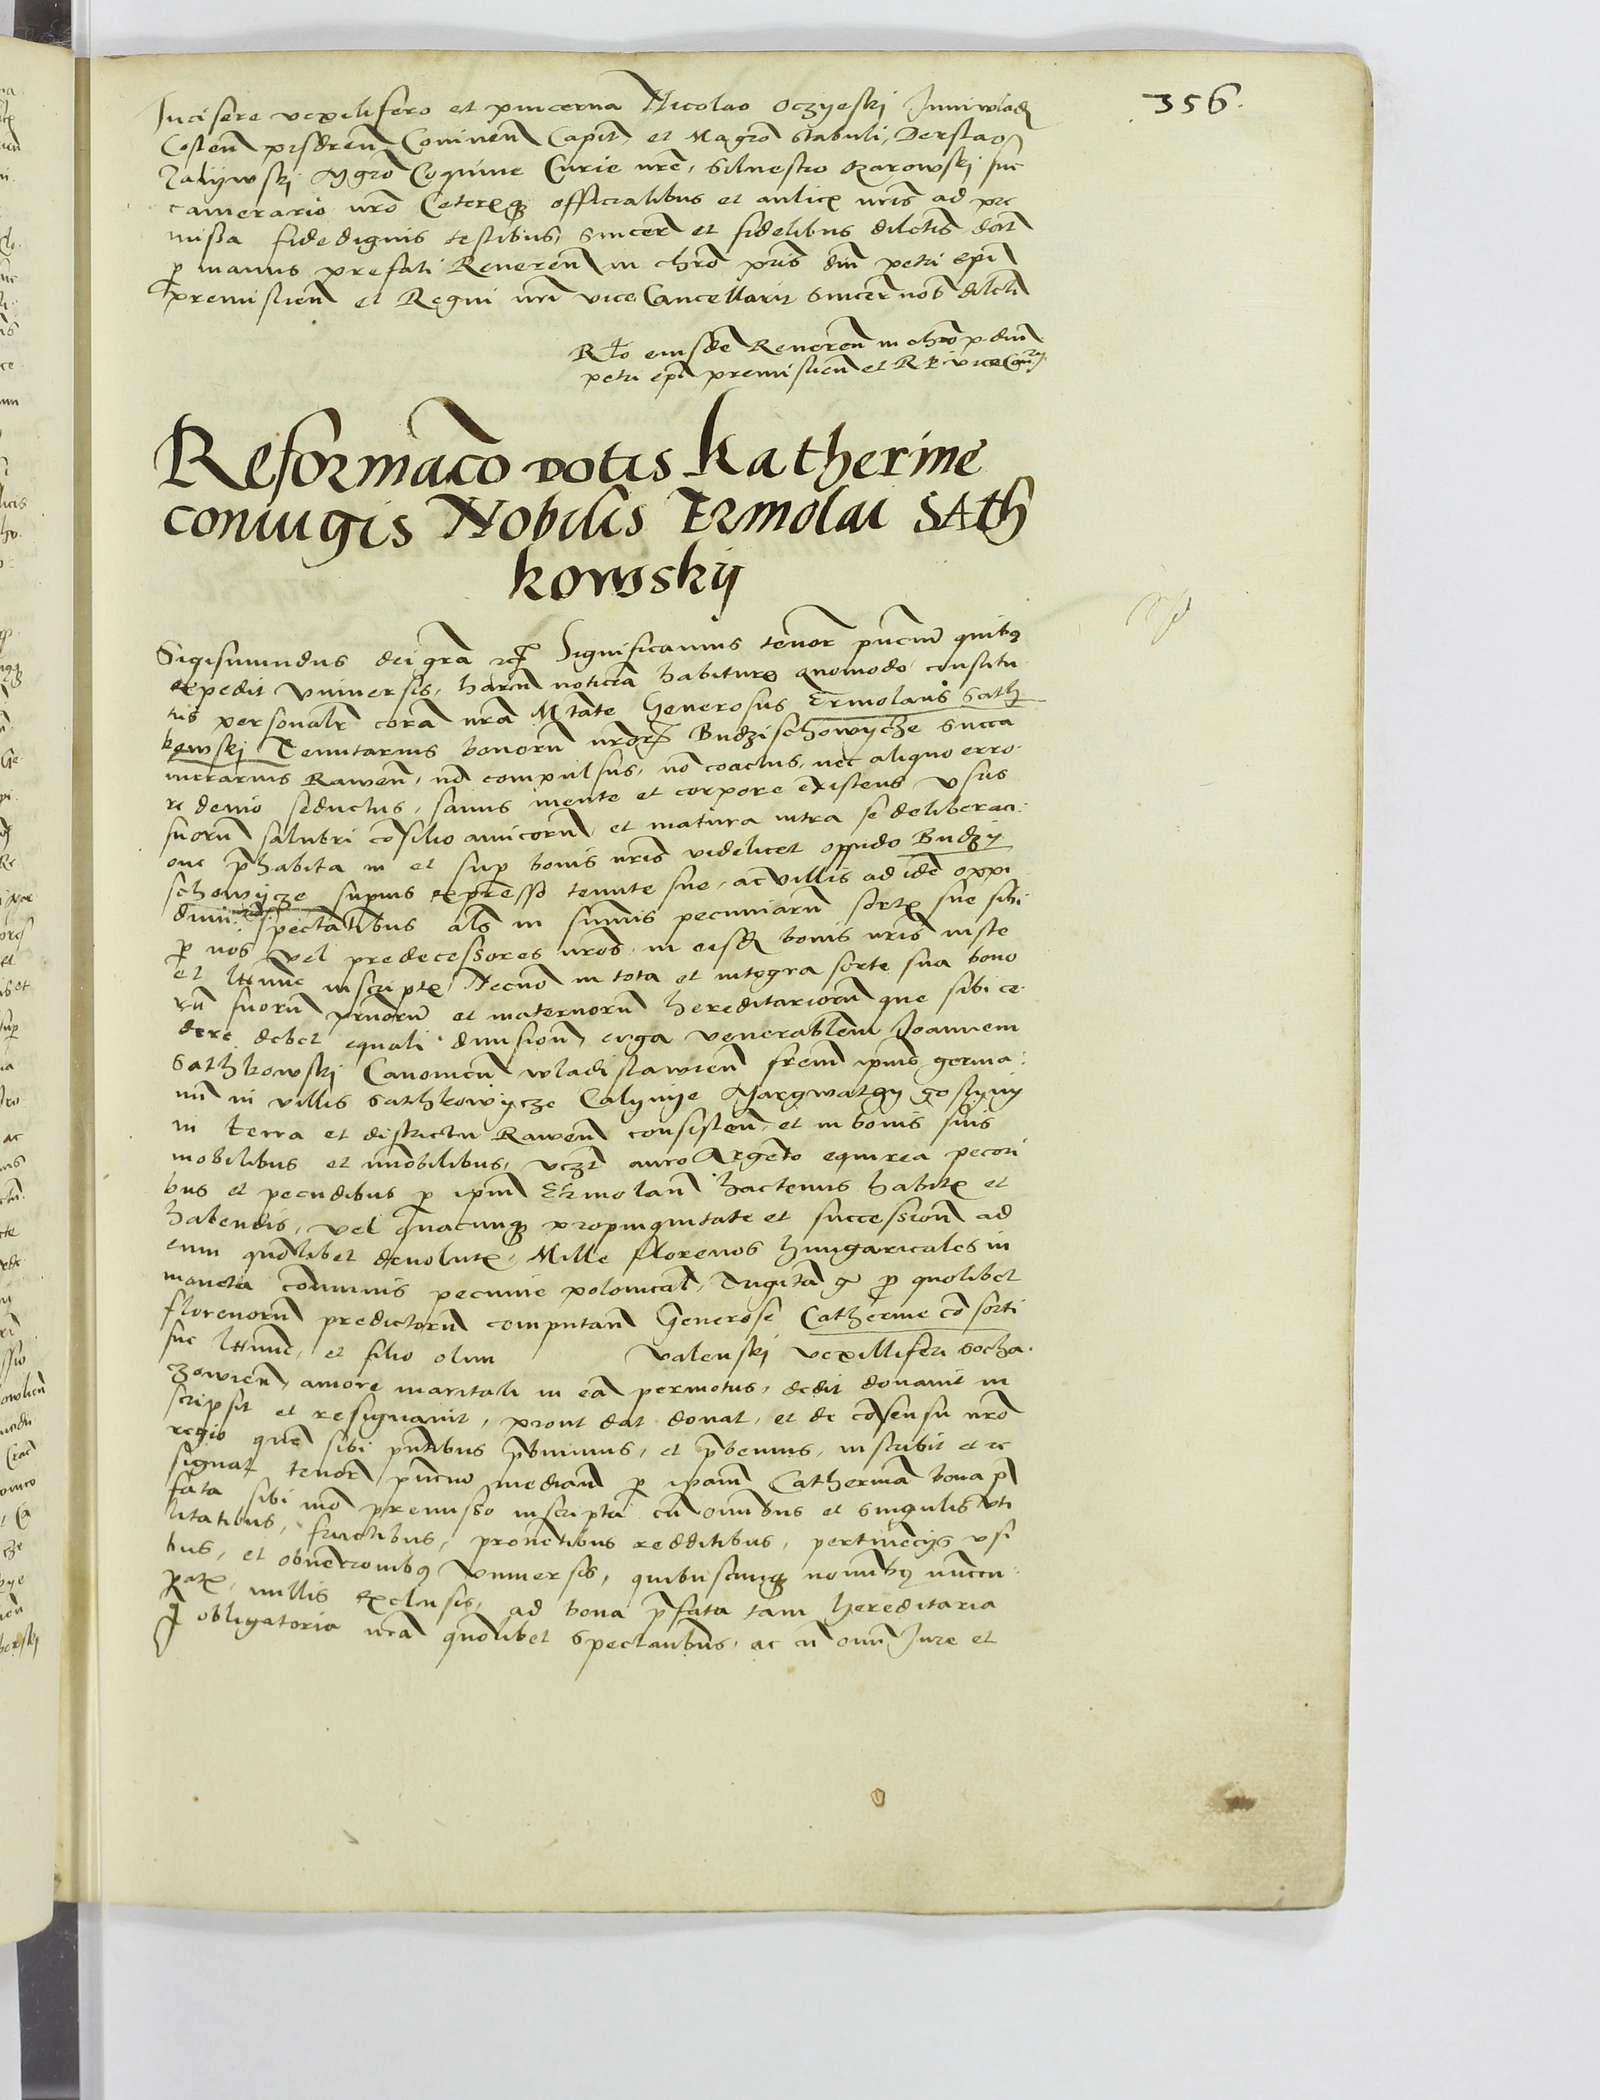 356.
Lucifere vexilifero et pincerna Nicolao Oczyeski Juniwladi
Costen Capit et Magro Stabuli, Derslao
Curie nre, Silvestro Ozarowski suc
camerario nro Ceterisq officialibus et aulicis nris ad pre
missa fidedignis testibus, sincer et fidelibus dilctis dat
p manus prefati Reveren in chro pris din petri epi
premislien et Regni nri vice Cancellarii sincer nob dilcti
Rlo eiusde Reveren in chro p din
petri epi premislien et R P vice
Reformaco dotis Katherine
coniugis Nobilis Ermolai Sath
kowskij
Sigismundus dei gra Significamus tenor pncium quibus
expedit universis, harum noticia habituris quomodo constitu
tus personalr cora nra Mtate Generosus Ermolaus Sath
kowski Tenutarius bonorum nror Budzischowycze succa
merarius Rawen, no compulsus, no coactus, nec aliquo erro
re devio seductus, sanus mente et corpore existens usus
suorum salubri cosilio amicorum et matura intra se deliberaci
one phabita in et sup bonis nris videlicet oppido Budzy
schowycze supius expresso tenute sue, ac villis ad ide oppi
dum spectatibus als in sumis pecuniarum sortis sue sibi
p nos vel predecessores nros in eisd bonis nris iuste
et lttime inscriptis Necno in tota et integra sorte sua bono
rum suorum prnorum et maternorum hereditariorum que sibi ce
dere debet equali division, erga venerablem Joannem
Sathkowski Canonicum wladislavien frem ipius germa
num in villis Sathkowycze Calynye gostyny
in terra et districtu Rawen consisten, et in bonis suis
mobilibus et imobilibus, uczt auro Argeto equirea pecori
bus et pecudibus p ipm Ermolaum hactenus habitis et
habendis, vel quacunq propinquitate et succession ad
eum quolibet devolutis, Mille florenos hungaricales in
moneta communis pecunie polonical, Triginta gr p quolibet
florenorum predictorum computan Generose Catherine cosorti
sue lttime, et filio olim Valenski Vexilliferi Socha
zowien, amore maritali in ea permotus, dedit donavit in
scripsit et resignavit, prout dat donat, et de cosensu nro
regio que sibi pntibus pbuimus, et pbemus, inscribit et re
signat tenor pncium median p ipam Catherina bona p
fata sibi mo premisso inscripta cu omibus et singulis uti
litatibus, fructibus, provetibus redditibus, pertinecys usi
bus, et obvecionibus Universis, quibuscunq nomibus nuncu
patis, nullis exclusis, ad bona pfata tam hereditaria
q obligatoria nra quolibet spectantibus, ac cu omi Jure et